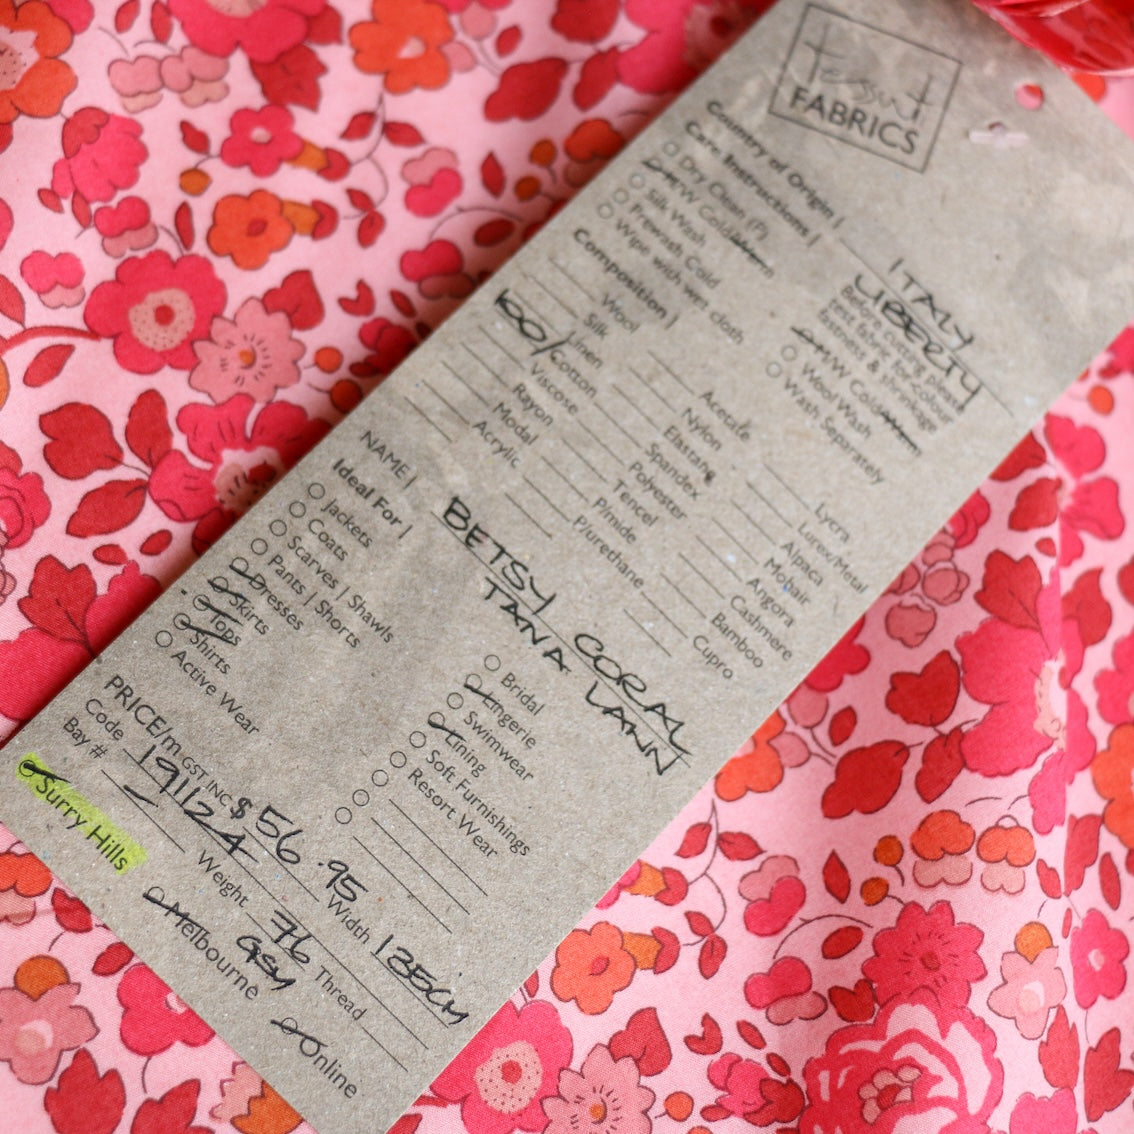 Tessuti
FABRICS
Country of Origin | ITALY
LIBERTY
Care Instructions | Before cutting please
test fabric for colour
fastness & shrinkage
Dry Clean (P)
MW Cold
MW Cold
Silk Wash
Wool Wash
Prewash Cold
Wash Separately
Wipe with wet cloth
Composition |
Wool
Acetate
Lycra
Silk
Nylon
Lurex/Metal
Linen
Elastane
Alpaca
100/ Cotton
Spandex
Mohair
Viscose
Polyester
Angora
Rayon
Tencel
Cashmere
Modal
P/mide
Bamboo
Acrylic
P/urethane
Cupro
NAME | BETSY CORAL
TANA LAWN
Ideal For |
Jackets
Bridal
Coats
Lingerie
Scarves | Shawls
Swimwear
Pants | Shorts
Lining
Dresses
Soft Furnishings
Skirts
Resort Wear
Tops
Shirts
Active Wear
PRICE/m GST INC $56.95
Code 191124
Width 135cm
Bay # –
Weight 76 GSM
Thread
Surry Hills
Melbourne
Online